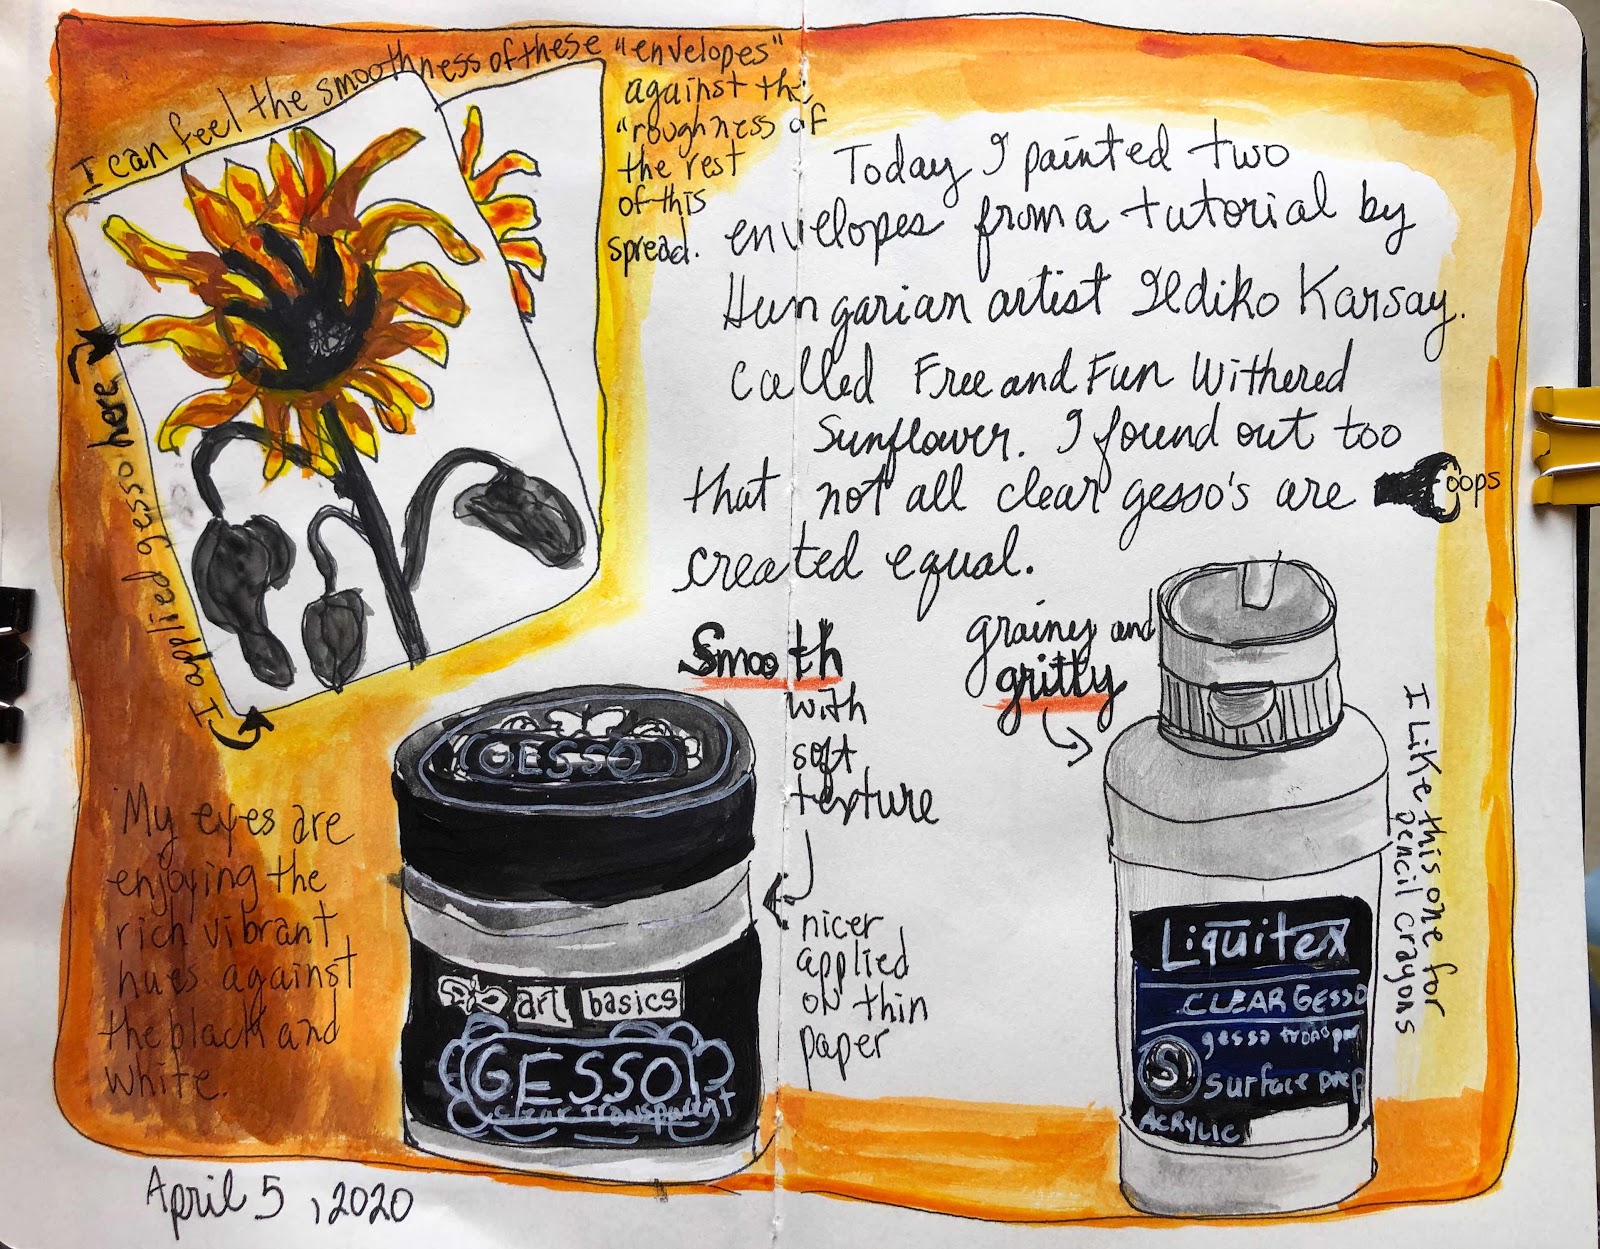 I can feel the smoothness of these "envelopes"
against the
"roughness of
the rest
of this
spread.
I applied gesso here
Today I painted two
envelopes from a tutorial by
Hungarian artist Ildiko Karsay.
Called Free and Fun Withered
Sunflower. I found out too
that not all clear gesso's are
oops
created equal.
Smooth
with
soft
texture
nicer
applied
on thin
paper
grainy and
gritty
I Like this one for
pencil crayons
My eyes are
enjoying the
rich vibrant
hues against
the black and
white.
GESSO
art basics
GESSO
clear transparent
Liquitex
CLEAR GESSO
gesso
S
surface prep
ACRYLIC
April 5, 2020